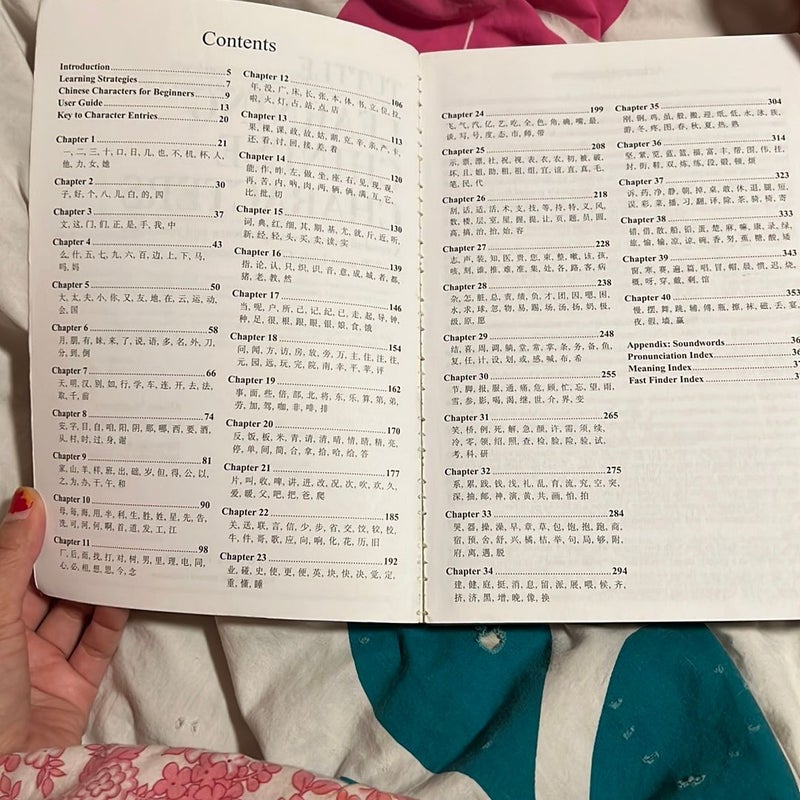 Contents
Introduction 5
Learning Strategies 7
Chinese Characters for Beginners 9
User Guide 13
Key to Character Entries 20
Chapter 1
一, 二, 三, 十, 口, 日, 几, 也, 不, 机, 杯, 人,
他, 力, 女, 她
Chapter 2 30
子, 好, 个, 八, 儿, 白, 的, 四
Chapter 3 37
文, 这, 门, 们, 正, 是, 手, 我, 中
Chapter 4 43
么, 什, 五, 七, 九, 六, 百, 边, 上, 下, 马,
吗, 妈
Chapter 5 50
大, 太, 夫, 小, 你, 又, 友, 地, 在, 云, 运, 动,
会, 国
Chapter 6 58
月, 朋, 有, 妹, 来, 了, 说, 语, 多, 名, 外, 刀,
分, 到, 倒
Chapter 7 66
天, 明, 汉, 别, 如, 行, 学, 车, 连, 开, 去, 法,
取, 千, 前
Chapter 8 74
安, 字, 目, 自, 咱, 阳, 阴, 那, 哪, 西, 要, 酒,
从, 村, 时, 过, 身, 谢
Chapter 9 81
家, 山, 羊, 样, 班, 出, 础, 岁, 但, 得, 公, 以,
之, 为, 办, 干, 午, 和
Chapter 10 90
母, 每, 海, 用, 半, 利, 生, 胜, 姓, 星, 先, 告,
洗, 可, 河, 何, 啊, 首, 道, 发, 工, 江
Chapter 11 98
厂, 后, 而, 找, 打, 对, 树, 男, 里, 理, 电, 同,
心, 必, 相, 想, 思, 今, 念
Chapter 12 106
年, 没, 广, 床, 长, 张, 本, 体, 书, 立, 位, 拉,
啦, 火, 灯, 占, 站, 点, 店
Chapter 13 113
果, 棵, 课, 政, 故, 姑, 胡, 克, 辛, 亲, 产, 卡,
还, 看, 讨, 回, 接, 差, 着
Chapter 14 120
能, 作, 昨, 左, 做, 坐, 座, 右, 见, 现, 观,
再, 苦, 内, 呐, 肉, 两, 俩, 俩, 满, 互, 它,
比, 批, 切
Chapter 15 130
词, 典, 红, 细, 其, 期, 基, 尤, 就, 斤, 近, 听,
新, 经, 轻, 头, 买, 卖, 读, 实
Chapter 16 139
指, 论, 认, 只, 织, 识, 音, 意, 成, 城, 者, 都,
猪, 老, 教, 然
Chapter 17 146
当, 呢, 户, 所, 己, 记, 纪, 已, 走, 起, 导, 钟,
种, 足, 很, 根, 跟, 眼, 银, 娘, 食, 饿
Chapter 18 154
问, 间, 方, 访, 房, 放, 旁, 万, 主, 住, 注, 往,
元, 园, 远, 玩, 完, 院, 南, 幸, 平, 苹, 评
Chapter 19 162
事, 面, 些, 倍, 部, 北, 将, 东, 乐, 算, 第, 弟,
劳, 加, 驾, 咖, 非, 啡, 排
Chapter 20 170
反, 饭, 板, 米, 青, 请, 清, 晴, 情, 睛, 精, 亮,
停, 单, 间, 简, 合, 拿, 拾, 哈, 给, 答
Chapter 21 177
片, 叫, 收, 啤, 讲, 进, 改, 况, 次, 吹, 欢, 久,
爱, 暖, 父, 吧, 把, 爸, 爬
Chapter 22 185
关, 送, 联, 言, 信, 少, 步, 省, 交, 饺, 较, 校,
牛, 件, 哥, 歌, 应, 向, 响, 化, 花, 历, 旧
Chapter 23 192
业, 碰, 史, 使, 更, 便, 英, 块, 快, 决, 觉, 定,
重, 懂, 睡
Chapter 24 199
飞, 气, 汽, 亿, 艺, 吃, 全, 色, 角, 确, 嘴, 最,
谈, 写, 号, 度, 态, 市, 师, 带
Chapter 25 208
示, 票, 漂, 社, 祝, 视, 表, 衣, 农, 初, 被, 破,
坏, 且, 姐, 助, 租, 祖, 组, 宜, 谊, 直, 真, 毛,
笔, 民, 代
Chapter 26 218
刮, 话, 适, 活, 术, 支, 技, 等, 持, 特, 义, 风,
数, 楼, 层, 室, 屋, 握, 提, 让, 页, 题, 员, 圆,
高, 搞, 治, 抬, 始, 容
Chapter 27 228
志, 声, 装, 知, 医, 贵, 您, 束, 整, 嗽, 该, 孩,
咳, 刻, 谁, 推, 难, 准, 集, 处, 各, 路, 客, 病
Chapter 28 238
杂, 怎, 脏, 总, 责, 绩, 负, 才, 团, 因, 嗯, 困,
水, 求, 球, 忽, 物, 易, 踢, 场, 汤, 扬, 奶, 极,
级, 原, 愿
Chapter 29 248
结, 喜, 周, 调, 躺, 堂, 常, 掌, 条, 务, 备, 鱼,
复, 任, 计, 设, 划, 或, 感, 喊, 布, 希
Chapter 30 255
节, 脚, 报, 服, 通, 痛, 危, 顾, 忙, 忘, 望, 雨,
雪, 参, 影, 喝, 渴, 继, 世, 介, 界, 变
Chapter 31 265
笑, 桥, 例, 死, 解, 急, 颜, 许, 需, 须, 续,
冷, 零, 领, 绍, 照, 查, 检, 脸, 险, 验, 试,
考, 科, 研
Chapter 32 275
系, 累, 践, 钱, 浅, 礼, 乱, 育, 流, 究, 空, 突,
深, 抽, 邮, 神, 演, 黄, 共, 画, 怕, 拍
Chapter 33 284
哭, 器, 操, 澡, 早, 章, 草, 包, 饱, 抱, 跑, 商,
宿, 预, 舍, 舒, 兴, 橘, 桔, 举, 句, 局, 够, 附,
府, 离, 遇, 脱
Chapter 34 294
建, 健, 庭, 挺, 消, 息, 留, 派, 展, 喂, 候, 齐,
挤, 济, 黑, 增, 晚, 像, 换
Chapter 35 304
刚, 钢, 鸡, 虽, 般, 搬, 迎, 纸, 低, 永, 泳, 族,
游, 冬, 疼, 图, 春, 秋, 夏, 热, 熟
Chapter 36 314
坚, 紧, 宽, 蓝, 篮, 福, 富, 丰, 帮, 围, 伟, 挂,
封, 街, 鞋, 双, 炼, 练, 段, 锻, 顿, 烦
Chapter 37 323
诉, 药, 净, 静, 朝, 掉, 桌, 敢, 休, 退, 腿, 短,
误, 彩, 菜, 播, 习, 翻, 译, 除, 茶, 骑, 椅, 寄
Chapter 38 333
错, 借, 散, 船, 铅, 蛋, 楚, 麻, 嘛, 康, 录, 绿,
旅, 愉, 输, 凉, 谅, 碗, 香, 努, 蕉, 糖, 酸, 矮
Chapter 39 343
窗, 寒, 赛, 遍, 篇, 唱, 冒, 帽, 晨, 惯, 迟, 烧,
概, 呀, 穿, 戴, 剩, 馆
Chapter 40 353
慢, 摆, 舞, 跳, 辅, 傅, 瓶, 擦, 袜, 磁, 丢, 宴,
夜, 假, 墙, 赢
Appendix: Soundwords 36
Pronunciation Index 36
Meaning Index 37
Fast Finder Index 3